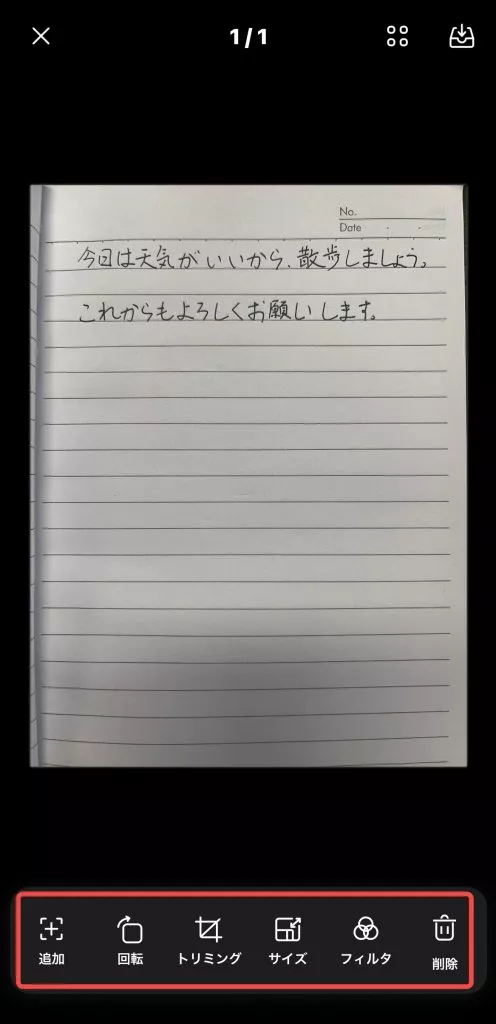 1/1
No.
Date . .
今日は天気がいいから、散歩しましょう。
これからもよろしくお願いします。
追加
回転
トリミング
サイズ
フィルタ
削除